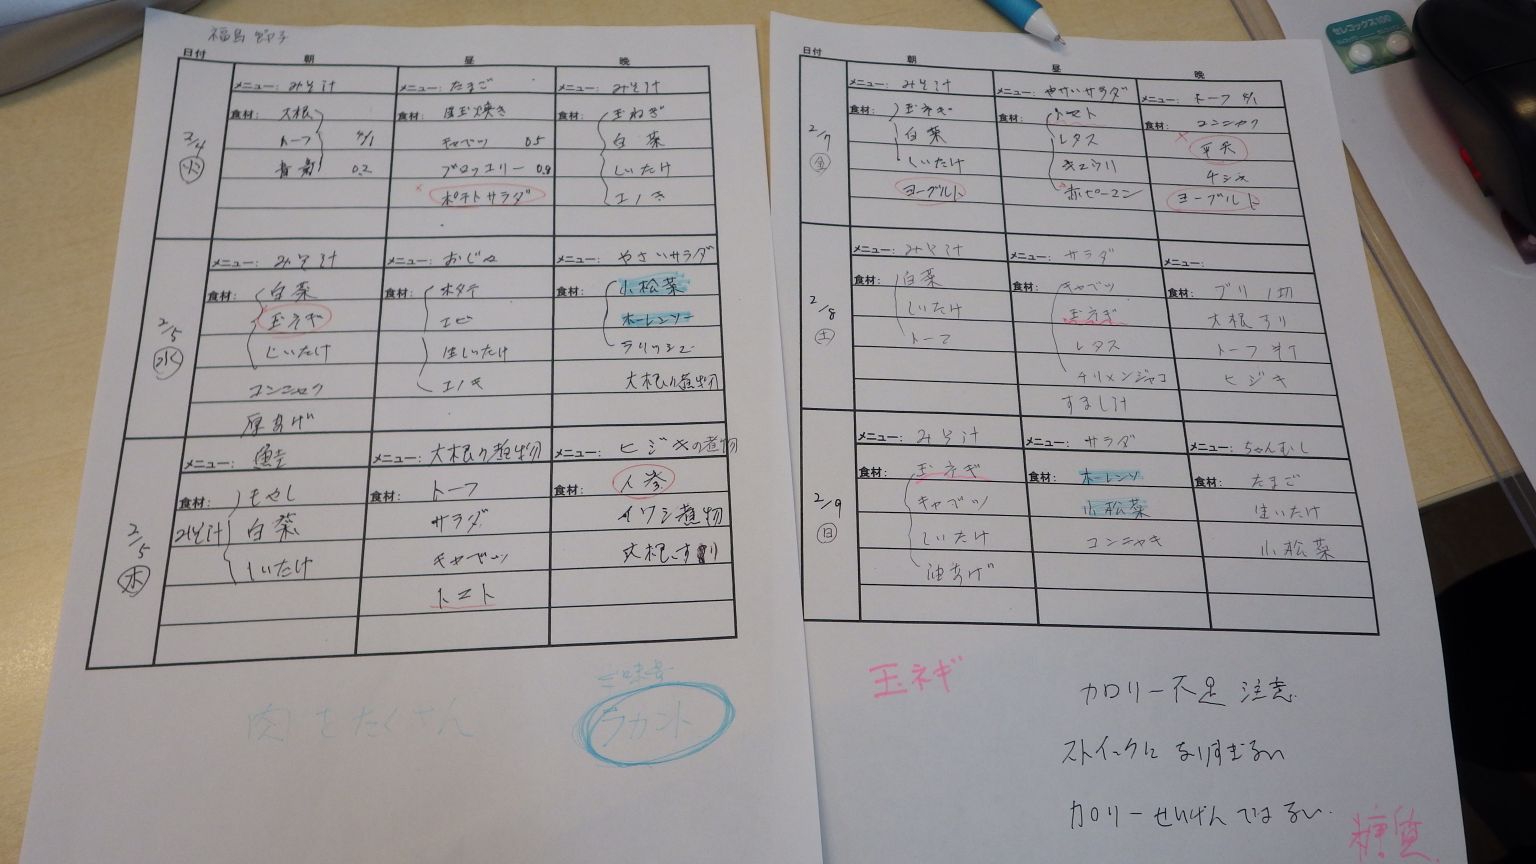 福島 節子
日付 朝 昼 晩
2/4 火
メニュー: みそ汁
食材: 大根
トーフ
メニュー: たまご
食材: 目玉焼き
キャベツ 0.5
ブロッコリー
ポテトサラダ
メニュー: みそ汁
食材: 玉ねぎ
白菜
しいたけ
エノキ
2/5 水
メニュー: みそ汁
食材: 白菜
玉ネギ
しいたけ
コンニャク
厚あげ
メニュー: おじや
食材: ホタテ
エビ
生しいたけ
エノキ
メニュー: やさいサラダ
食材: 小松菜
ホーレンソー
大根の煮物
2/5 木
メニュー: 鮭
食材: もやし
みそ汁 白菜
しいたけ
メニュー: 大根の煮物
食材: トーフ
サラダ
キャベツ
トマト
メニュー: ヒジキの煮物
食材: 人参
イワシ煮物
大根すり
肉をたくさん
甘味景
ラカント
日付 朝 昼 晩
2/7 金
メニュー: みそ汁
食材: 玉ネギ
白菜
しいたけ
ヨーグルト
メニュー: やサいサラダ
食材: トマト
レタス
キュウリ
赤ピーマン
メニュー: トーフ
食材: コンニャク
ヨーグルト
2/8 土
メニュー: みそ汁
食材: 白菜
しいたけ
トーフ
メニュー: サラダ
食材: キャベツ
玉ネギ
レタス
チリメンジャコ
すまし汁
メニュー:
食材: ブリ 1切
大根すり
トーフ
ヒジキ
2/9 日
メニュー: みそ汁
食材: 玉ネギ
キャベツ
しいたけ
油あげ
メニュー: サラダ
食材: ホーレンソ
小松菜
コンニャキ
メニュー: ちゃんむし
食材: たまご
生いたけ
小松菜
玉ネギ
カロリー不足 注意
ストイックに なりすぎない
カロリーせいげんではない.
糖質
セレコックス100